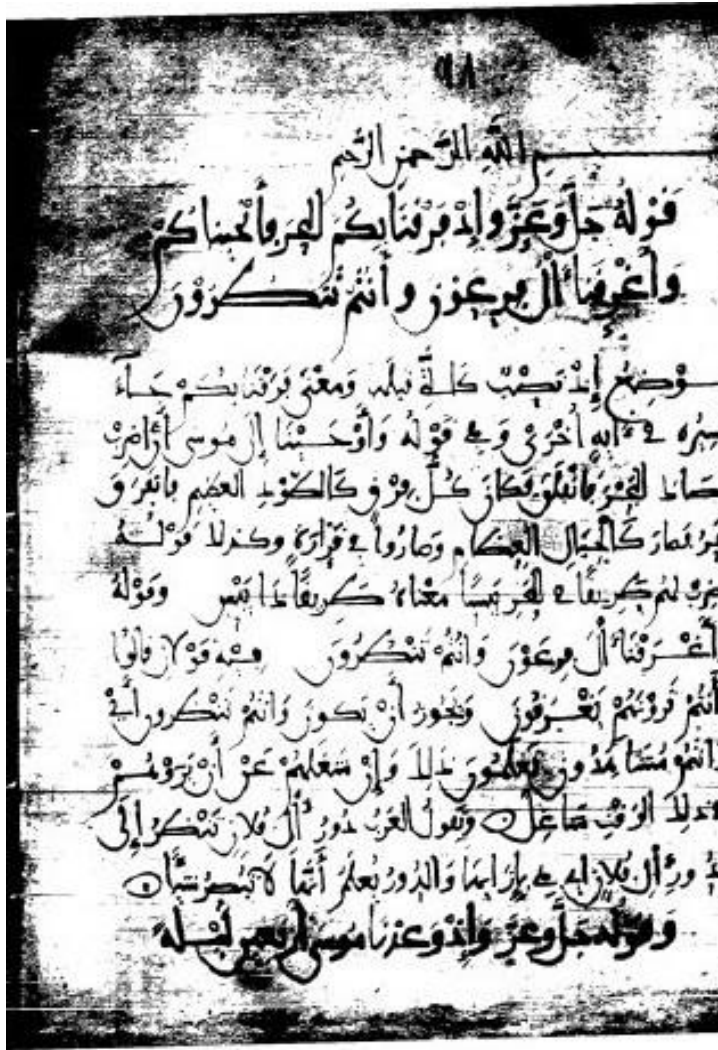 ٩٨
ـم الله الرحمن الرحيم
قَوْلُهُ جَلَّ وَعَزَّ وإِذْ فَرَقْنَا بِكُمُ البحر فأنْجيناكُمْ
وأَغْرَقْنَا ءَالَ فِرعَوْن وأنتُمْ تَنظُرُون
مَوْضِعُ إِذْ نَصْبٌ كالتي قبله ومَعْنَى فرقْنَا بكم جَاءَ
تفسيره في ءاية أُخْرَى وهي قوله وأوْحَيْنا إلى موسى أن اضرب
بعصاك البحر فانفلق فكان كُلُّ فرق كالطود العظيم فانفرق
البحر فصار كالجبال العظام وصاروا في قراره وكذلك قوله
فاضرب لهم طريقًا في البحر يَبَسًا معناه طريقًا ذا يَبَس وقوله
وأغرقنا ءال فرعون وأنتم تنظرون فيه قولان قالوا
وأنتم تَرَوْنَهم يَغْرَقون ويجوز أن يكون وأنتم تنظرون أي
وأنتم مشاهدون تعلمون ذلك وإن شغلهم عن أن يروهم
في ذلك الوقت شاغل وتقول العرب دور ءال فلان تنظر إلى
دور ءال فلان أي هي بإزايها والدور يُعلم أنها لا تبصر شيئًا
وقوله جَلَّ وعزَّ وإذ وعدنا موسى أربعين ليلة